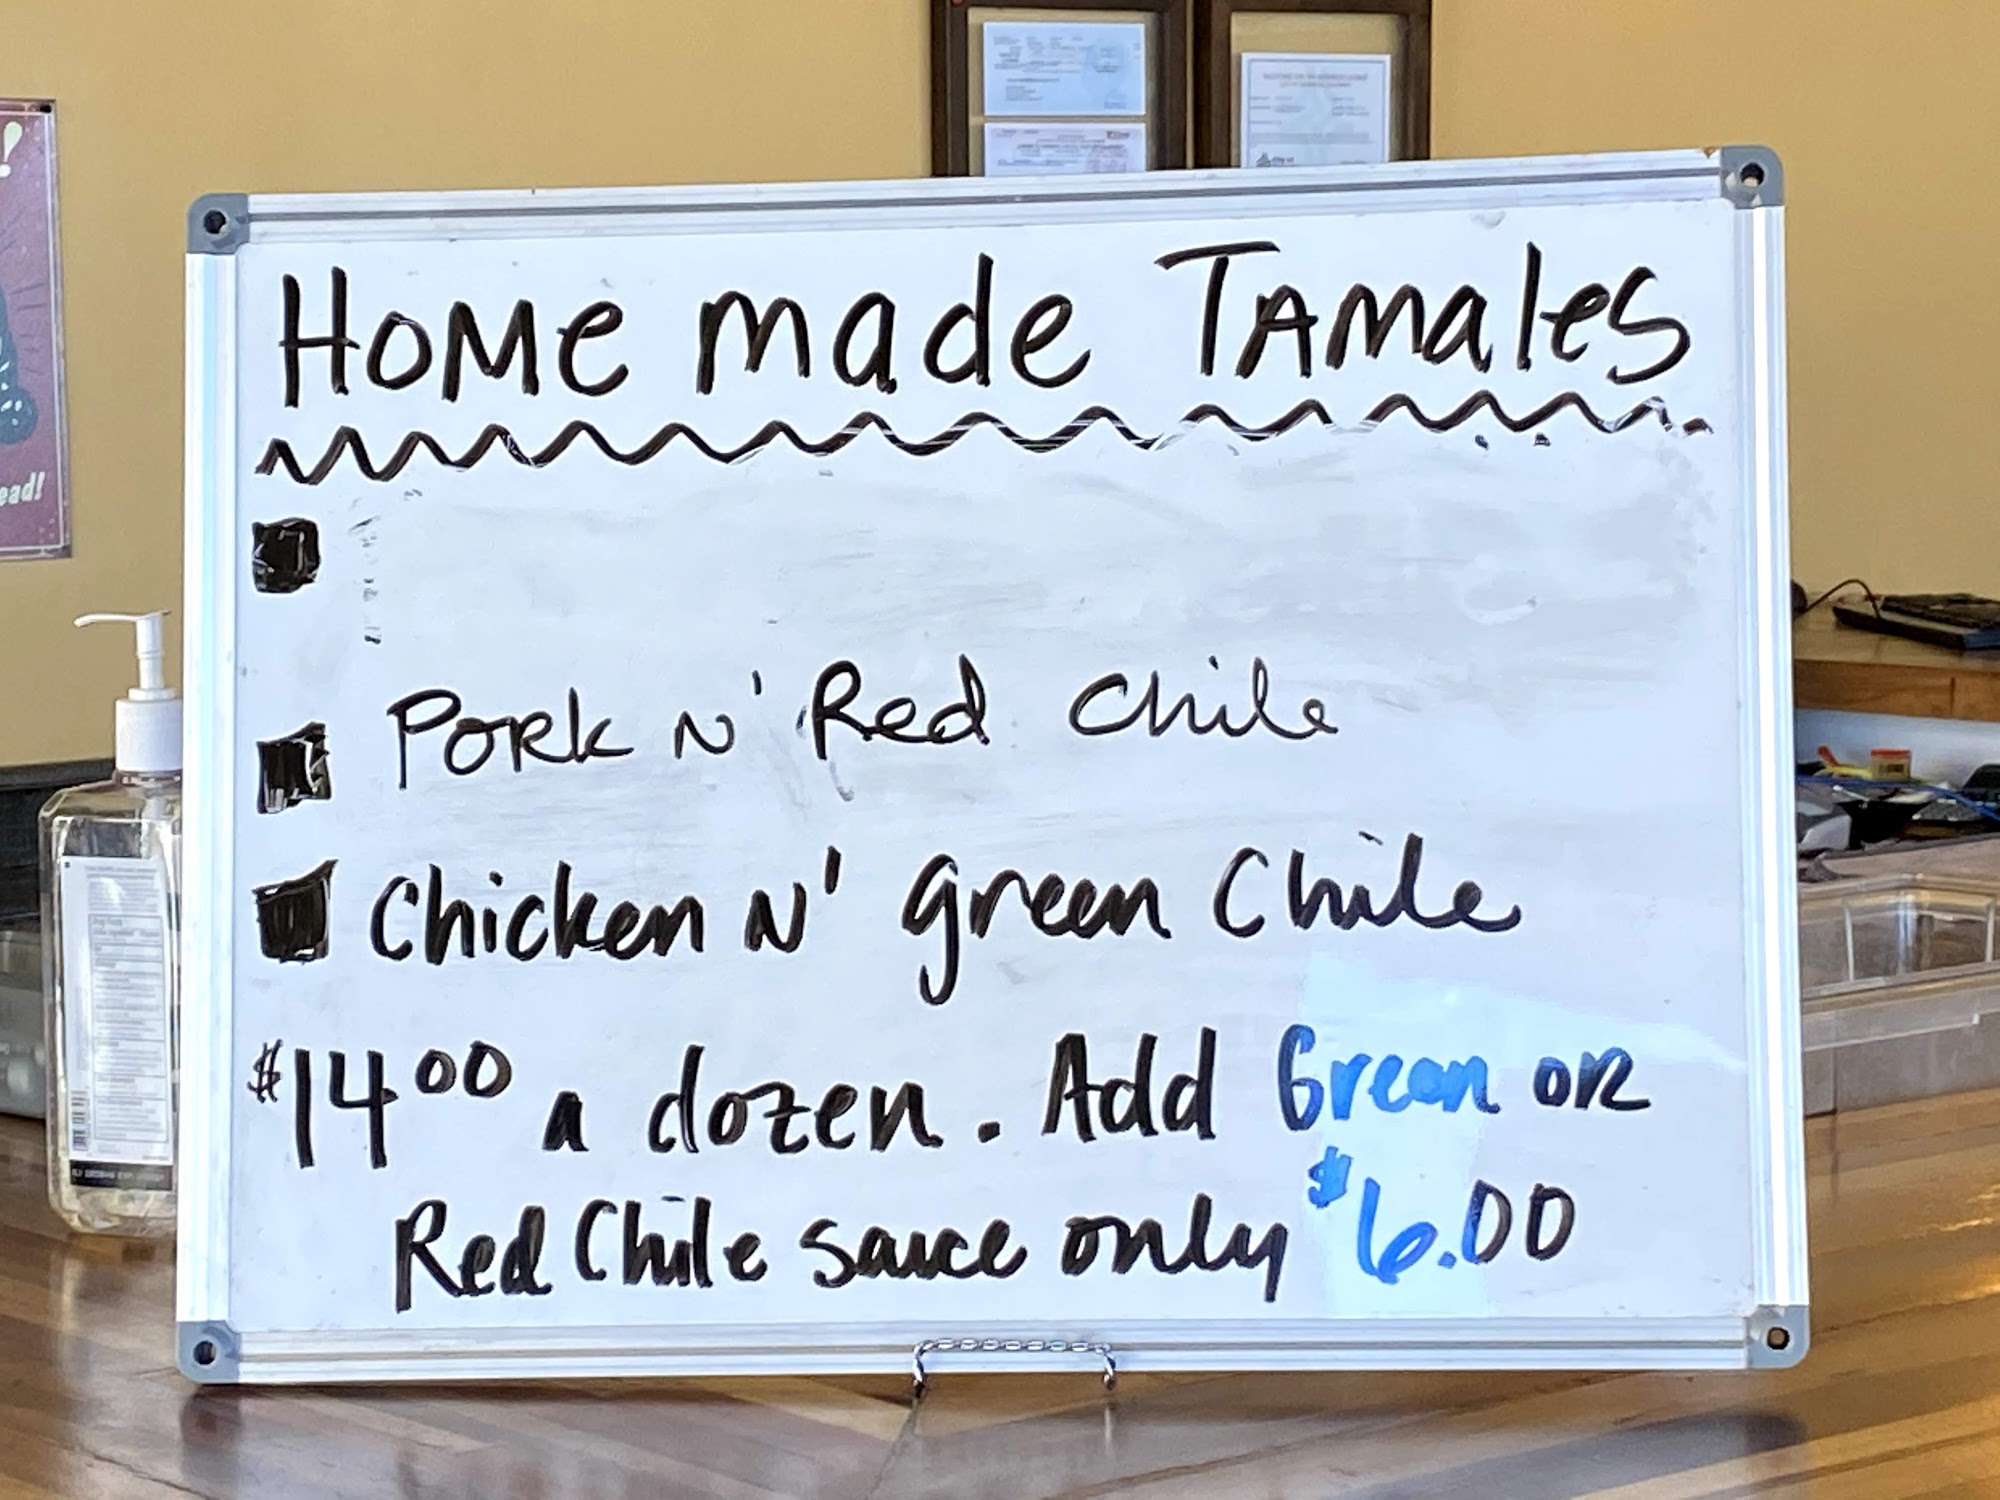 Home made Tamales
Pork N' Red Chile
Chicken N' green Chile
$14.00 a dozen. Add Green or
Red Chile sauce only $6.00
!
ead!